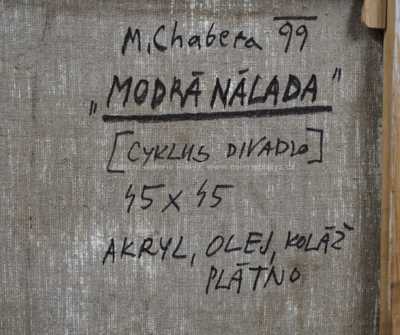 M. Chabera 99
„MODRÁ NÁLADA"
[CYKLUS DIVADLO]
45 x 45
AKRYL, OLEJ, KOLÁŽ
PLÁTNO